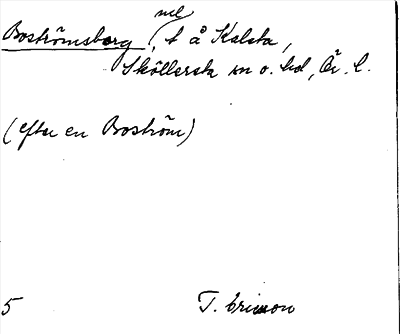 nel
Boströmsberg, t å Kalsta,
Sköllersta sn o. hd, Ör. l.
(efter en Boström)
5 T. Ericson